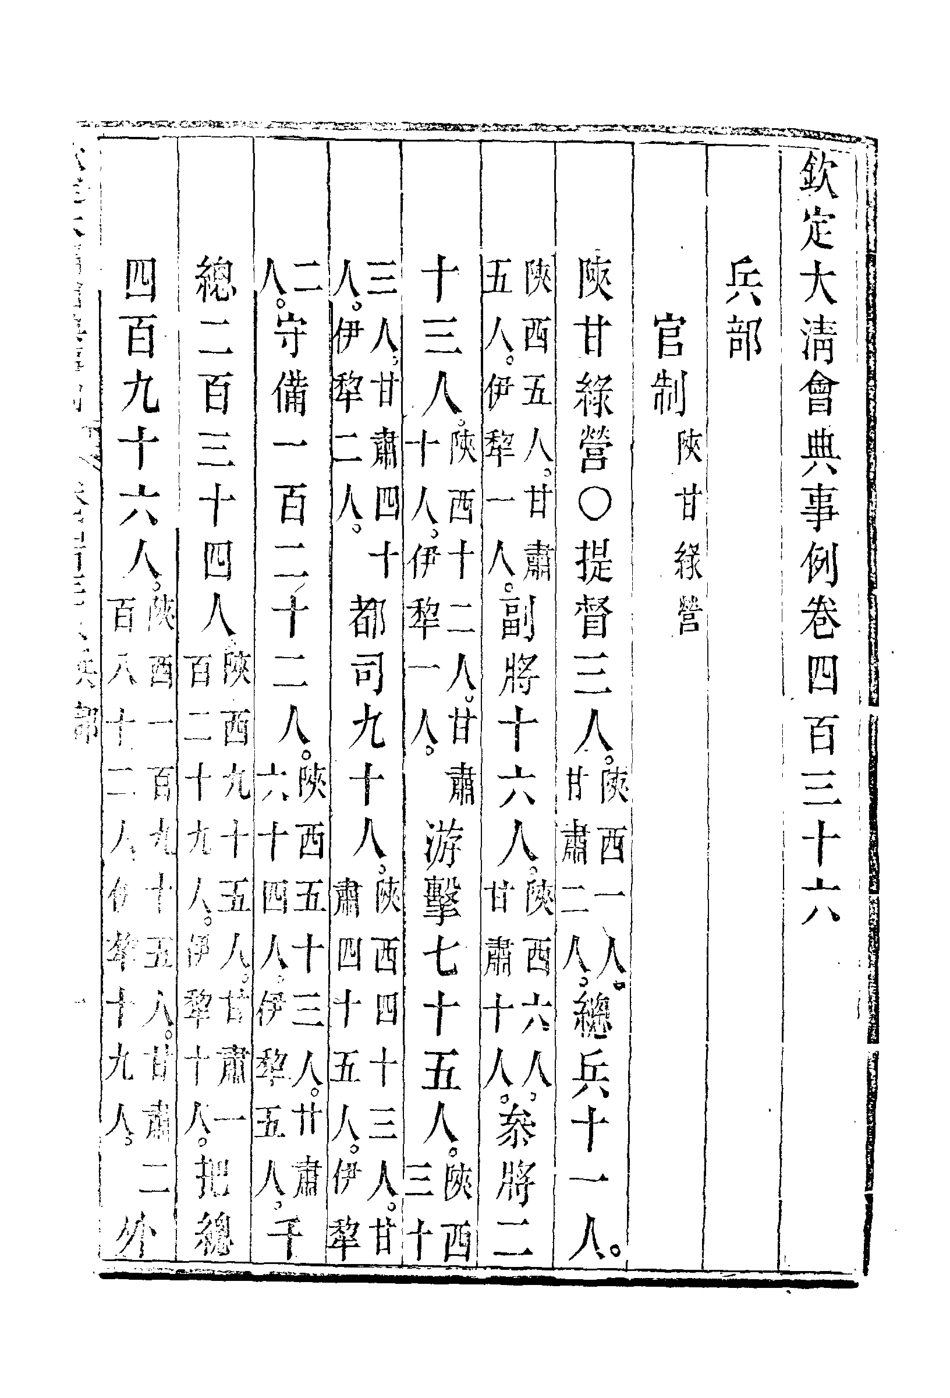 欽定大清會典事例卷四百三十六
兵部
官制陝甘綠營
陝甘綠營○提督三人。陝西一人。甘肅二人。總兵十一人。
陝西五人。甘肅五人。伊犂一人。副將十六人。陝西六人。甘肅十人。叅將二
十三人。陝西十二人。甘肅十人。伊犂一人。游擊七十五人。陝西三十
三人。甘肅四十人。伊犂二人。都司九十人。陝西四十三人。甘肅四十五人。伊犂
二人。守備一百二十二人。陝西五十三人。甘肅六十四人。伊犂五人。千
總二百三十四人。陝西九十五人。甘肅一百二十九人。伊犂十人。把總
四百九十六人。陝西一百九十五人。甘肅二百八十二人。伊犂十九人。外
兵部
一